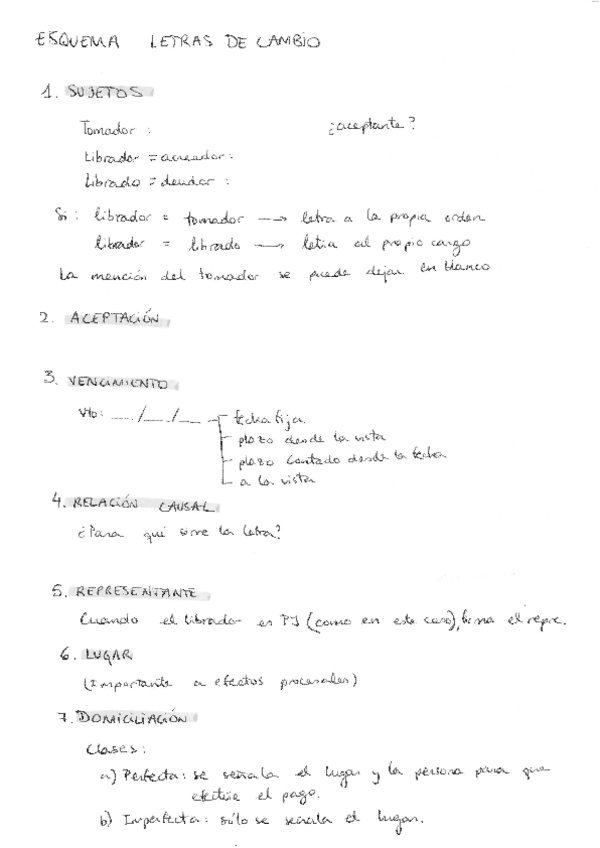 ESQUEMA LETRAS DE CAMBIO
1. SUJETOS
Tomador : ¿aceptante?
Librador = acreedor :
Librado = deudor :
Si : librador = tomador → letra a la propia orden
librador = librado → letra al propio cargo
La mención del tomador se puede dejar en blanco
2. ACEPTACIÓN
3. VENCIMIENTO
Vto: __/__/__ fecha fija.
plazo desde la vista
plazo contado desde la fecha
a la vista
4. RELACIÓN CAUSAL
¿Para qué sirve la letra?
5. REPRESENTANTE
Cuando el librador es PJ (como en este caso), firma el repre.
6. LUGAR
(Importante a efectos procesales)
7. DOMICILIACIÓN
Clases :
a) Perfecta : se señala el lugar y la persona para que
efectúe el pago.
b) Imperfecta : sólo se señala el lugar.